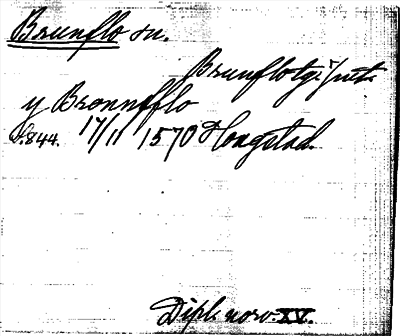 Brunflo sn.
Brunflo tg i Jmt.
y Bronnfflo
S. 844. 17/11 1570 Hongstad.
Dipl. norv. XV.